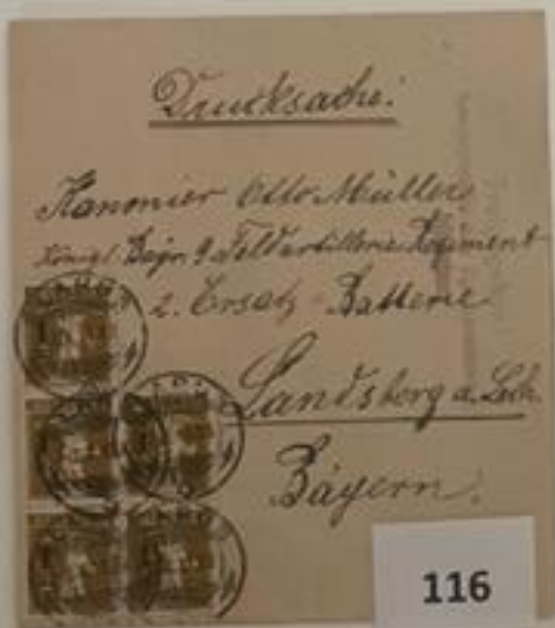 Drucksache.
Kanonier Otto Müller
Königl. Bayr. 9 Feldartillerie Regiment
2. Ersatz-Batterie
Landsberg a. Lech.
Bayern.
116